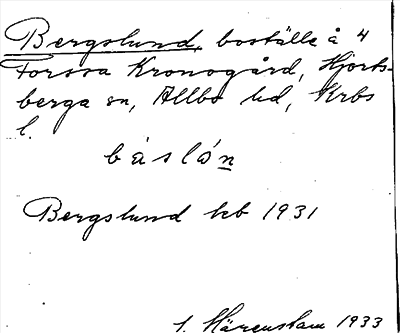 Bergslund, boställe å 4
Forssa Kronogård, Hjorts-
berga sn, Allbo hd, Krbs
l.
båslón
Bergslund kb 1931
1. Härenstam 1933